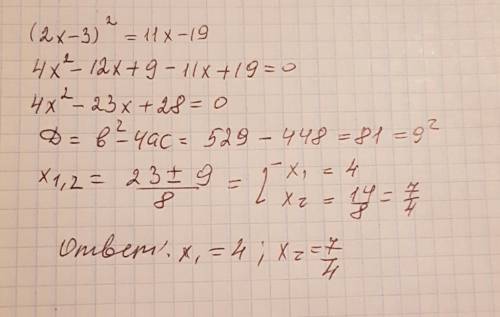 (2x-3)² = 11x-19
4x² - 12x + 9 - 11x + 19 = 0
4x² - 23x + 28 = 0
D = b² - 4ac = 529 - 448 = 81 = 9²
x₁,₂ = (23 ± 9)/8 = [ x₁ = 4
x₂ = 14/8 = 7/4
Ответ: x₁ = 4 ; x₂ = 7/4